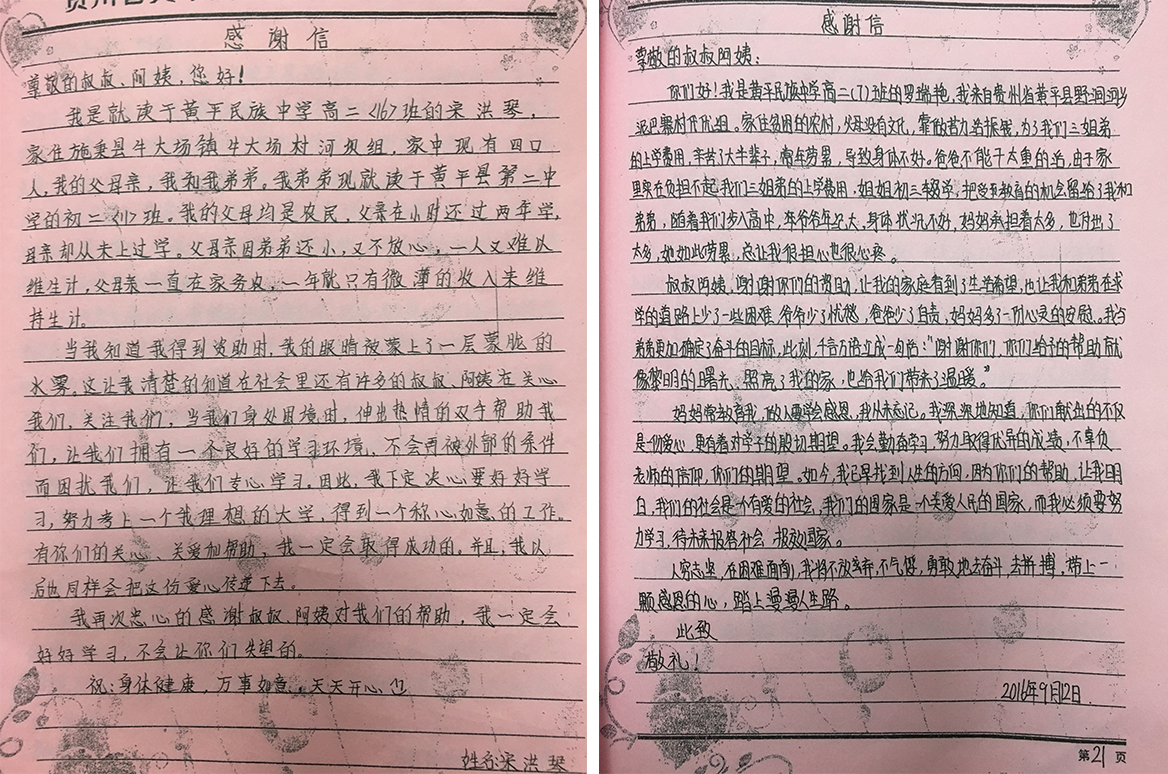 感谢信
尊敬的叔叔、阿姨，您好！
我是就读于黄平民族中学高二<16>班的宋洪琴，
家住施秉县牛大场镇牛大场村河坝组，家中现有四口
人，我的父母亲，我和我弟弟。我弟弟现就读于黄平县第二中
学的初二<11>班。我的父母均是农民，父亲在小时还过两年学，
母亲却从未上过学。父母亲因弟弟还小，又不放心，一人又难以
维生计，父母亲一直在家务农，一年就只有微薄的收入来维
持生计。
当我知道我得到资助时，我的眼睛被蒙上了一层蒙胧的
水雾。这让我清楚的知道在社会里还有许多的叔叔、阿姨在关心
我们，关注我们，当我们身处困境时，伸出热情的双手帮助我
们，让我们拥有一个良好的学习环境，不会再被外部的条件
而困扰我们，让我们专心学习。因此，我下定决心要好好学
习，努力考上一个我理想的大学，得到一个称心如意的工作。
有你们的关心、关爱和帮助，我一定会取得成功的。并且，我以
后也同样会把这份爱心传递下去。
我再次忠心的感谢叔叔、阿姨对我们的帮助，我一定会
好好学习，不会让你们失望的。
祝：身体健康，万事如意，天天开心
姓名：宋洪琴
感谢信
尊敬的叔叔阿姨：
你们好！我是黄平民族中学高二(7)班的罗瑞艳，我来自贵州省黄平县野洞河乡
泥巴寨村组。家住贫困的农村，父母没有文化，靠做苦力活挣钱，为了我们三姐弟
的上学费用，辛苦了大半辈子，常年劳累，导致身体不好。爸爸不能干太重的活，由于家
里实在负担不起我们三姐弟的上学费用，姐姐初三辍学，把受教育的机会留给了我和
弟弟，随着我们步入高中，爷爷年纪大，身体状况不好，妈妈承担着太多，也付出了
太多，她如此劳累，总让我很担心也很心疼。
叔叔阿姨，谢谢你们的赞助，让我的家庭看到了生活希望，也让我和弟弟在求
学的道路上少了一些困难，爷爷少了忧愁，爸爸少了自责，妈妈多了一份心灵的安慰。我与
弟弟更加确定了奋斗的目标，此刻，千言万语汇成一句话：“谢谢你们，你们给予的帮助就
像黎明的曙光，照亮了我的家，也给我们带来了温暖。”
妈妈常教育我，做人要学会感恩，我从未忘记，我深深地知道，你们献出的不仅
是一份爱心，更有着对学子的殷切期望。我会勤奋学习，努力取得优异的成绩，不辜负
老师的信仰，你们的期望。如今，我已早找到人生的方向，因为你们的帮助，让我明
白，我们的社会是个有爱的社会，我们的国家是一个关爱人民的国家，而我必须要努
力学习，待未来报答社会，报效国家。
人穷志坚，在困难面前，我将不放弃，不气馁，勇敢地去奋斗，去拼搏，带上一
颗感恩的心，踏上漫漫人生路。
此致
敬礼！
2016年9月12日
第21页